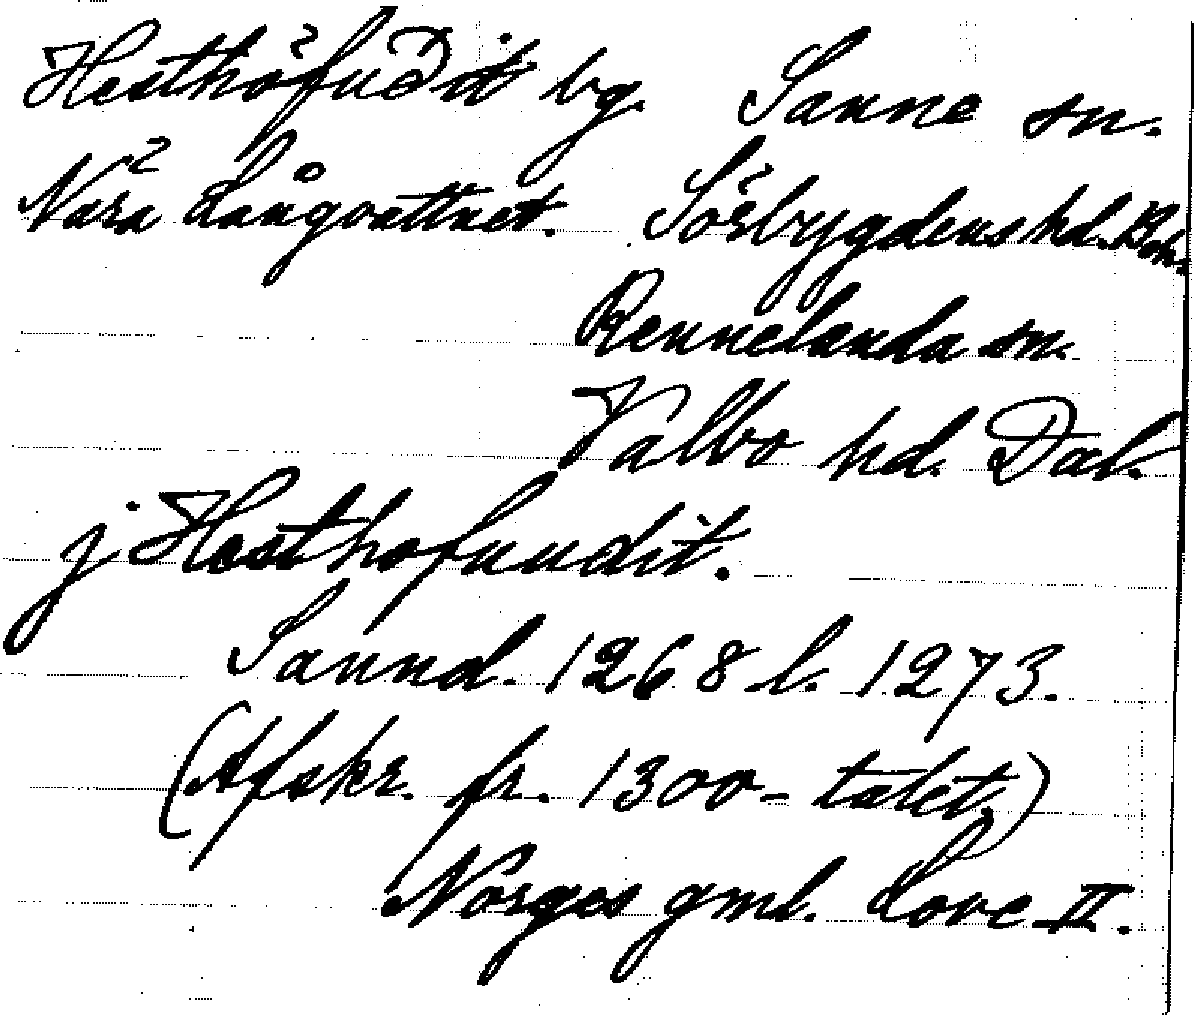 Hesthöfuðit bg. Sanne sn.
Nära Långvattnet. Sörbygdens hd. Boh.
Rennelanda sn.
Valbo hd. Dal.
j Hesthofuudit.
Sannd. 1268 l. 1273.
(Afskr. fr. 1300-talet.)
Norges gml. Love II.